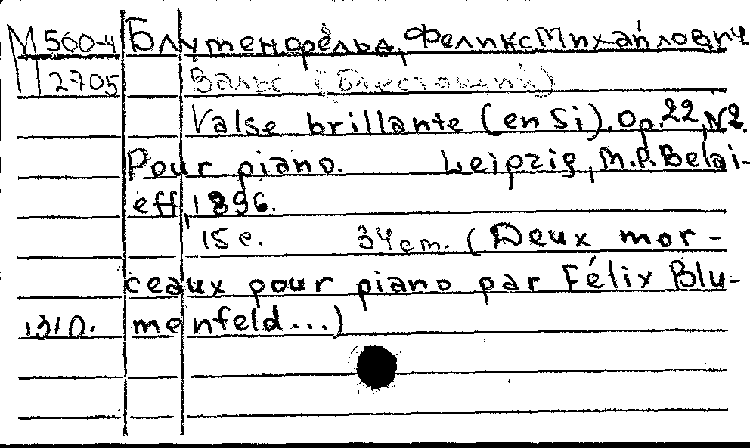 М 560-4 Блуменфельд, Феликс Михайлович
П 2705 Вальс (Блестящий)
Valse brillante (en Si). Op. 22, N2.
Pour piano. Leipzig, M.P. Belai-
eff, 1896.
15 с. 34 cm. (Deux mor-
ceaux pour piano par Félix Blu-
menfeld...)